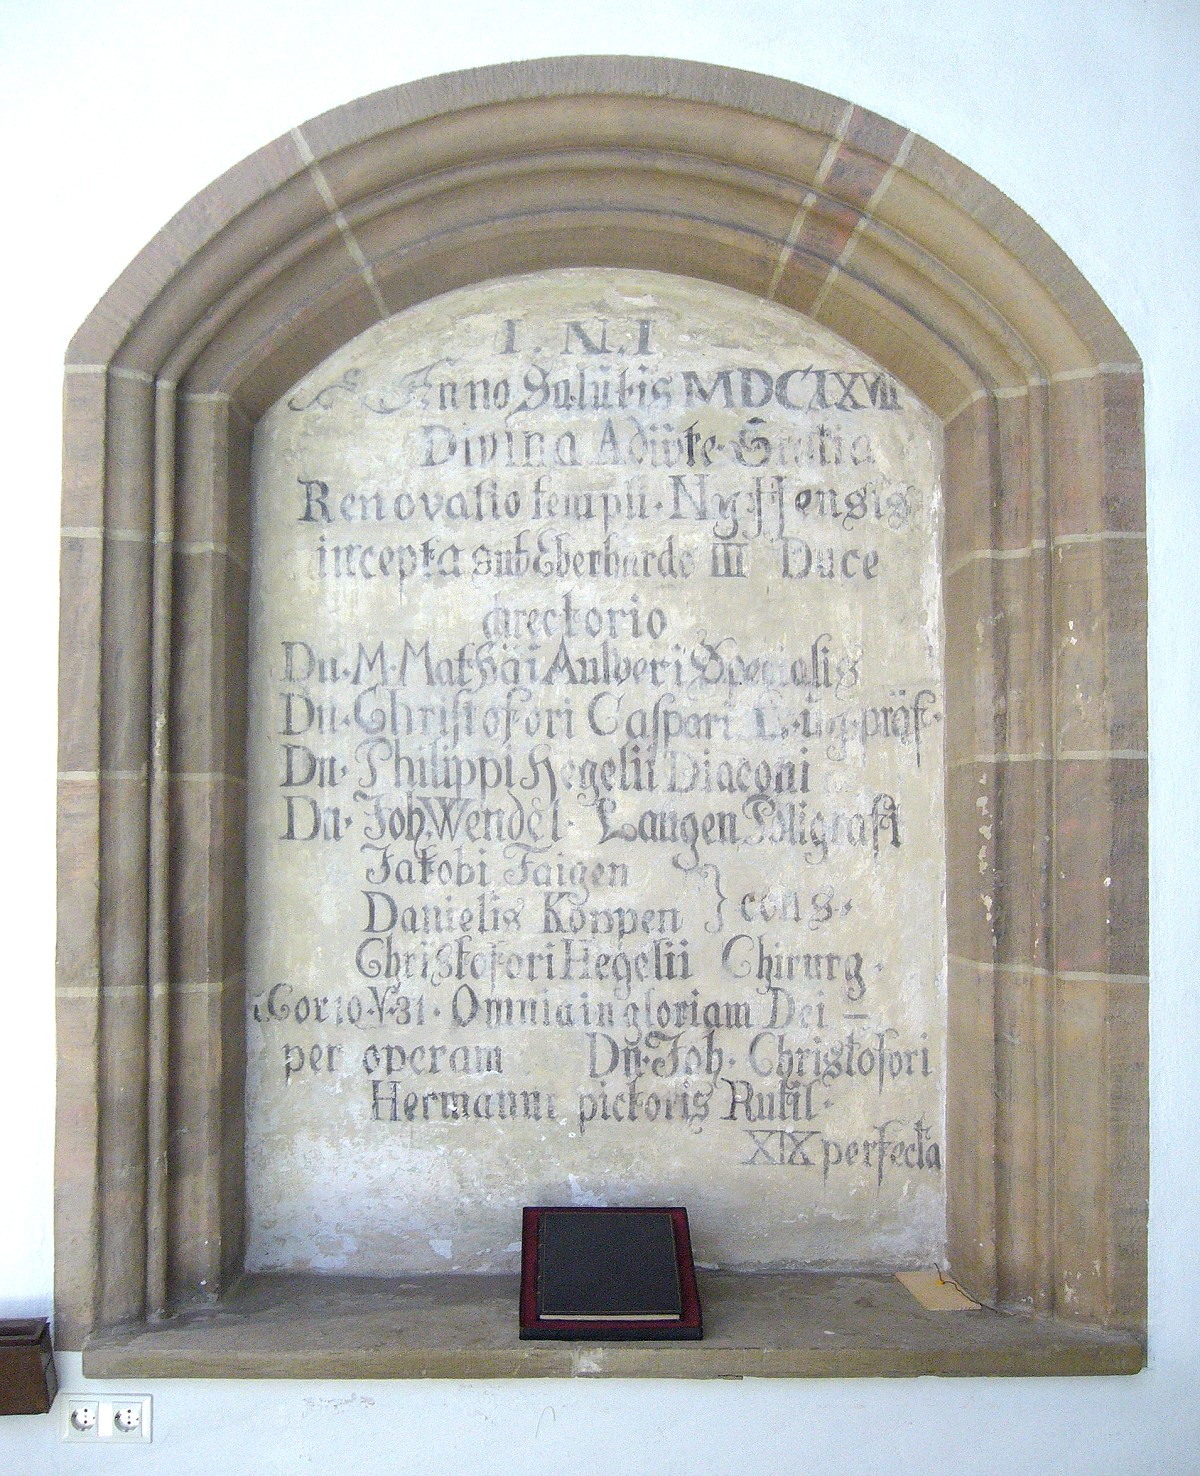 I. N. I
Anno Salutis MDCLXXVII
Divina Adiüvte Gratia
Renovatio templi Nyffensis
incepta sub Eberhardo III Duce
directorio
Dn. M. Mathäi Aulberi Specialis
Dn. Christofori Caspari präf.
Dn. Philippi Hegelii Diaconi
Dn. Joh. Wendel. Langen Poligrafi
Jakobi Faigen
Danielis Koppen } cons.
Christofori Hegelii Chirurg.
1. Cor 10. V. 31. Omnia in gloriam Dei –
per operam Dn. Joh. Christofori
Hermanni pictoris Rutil.
XIX perfecta